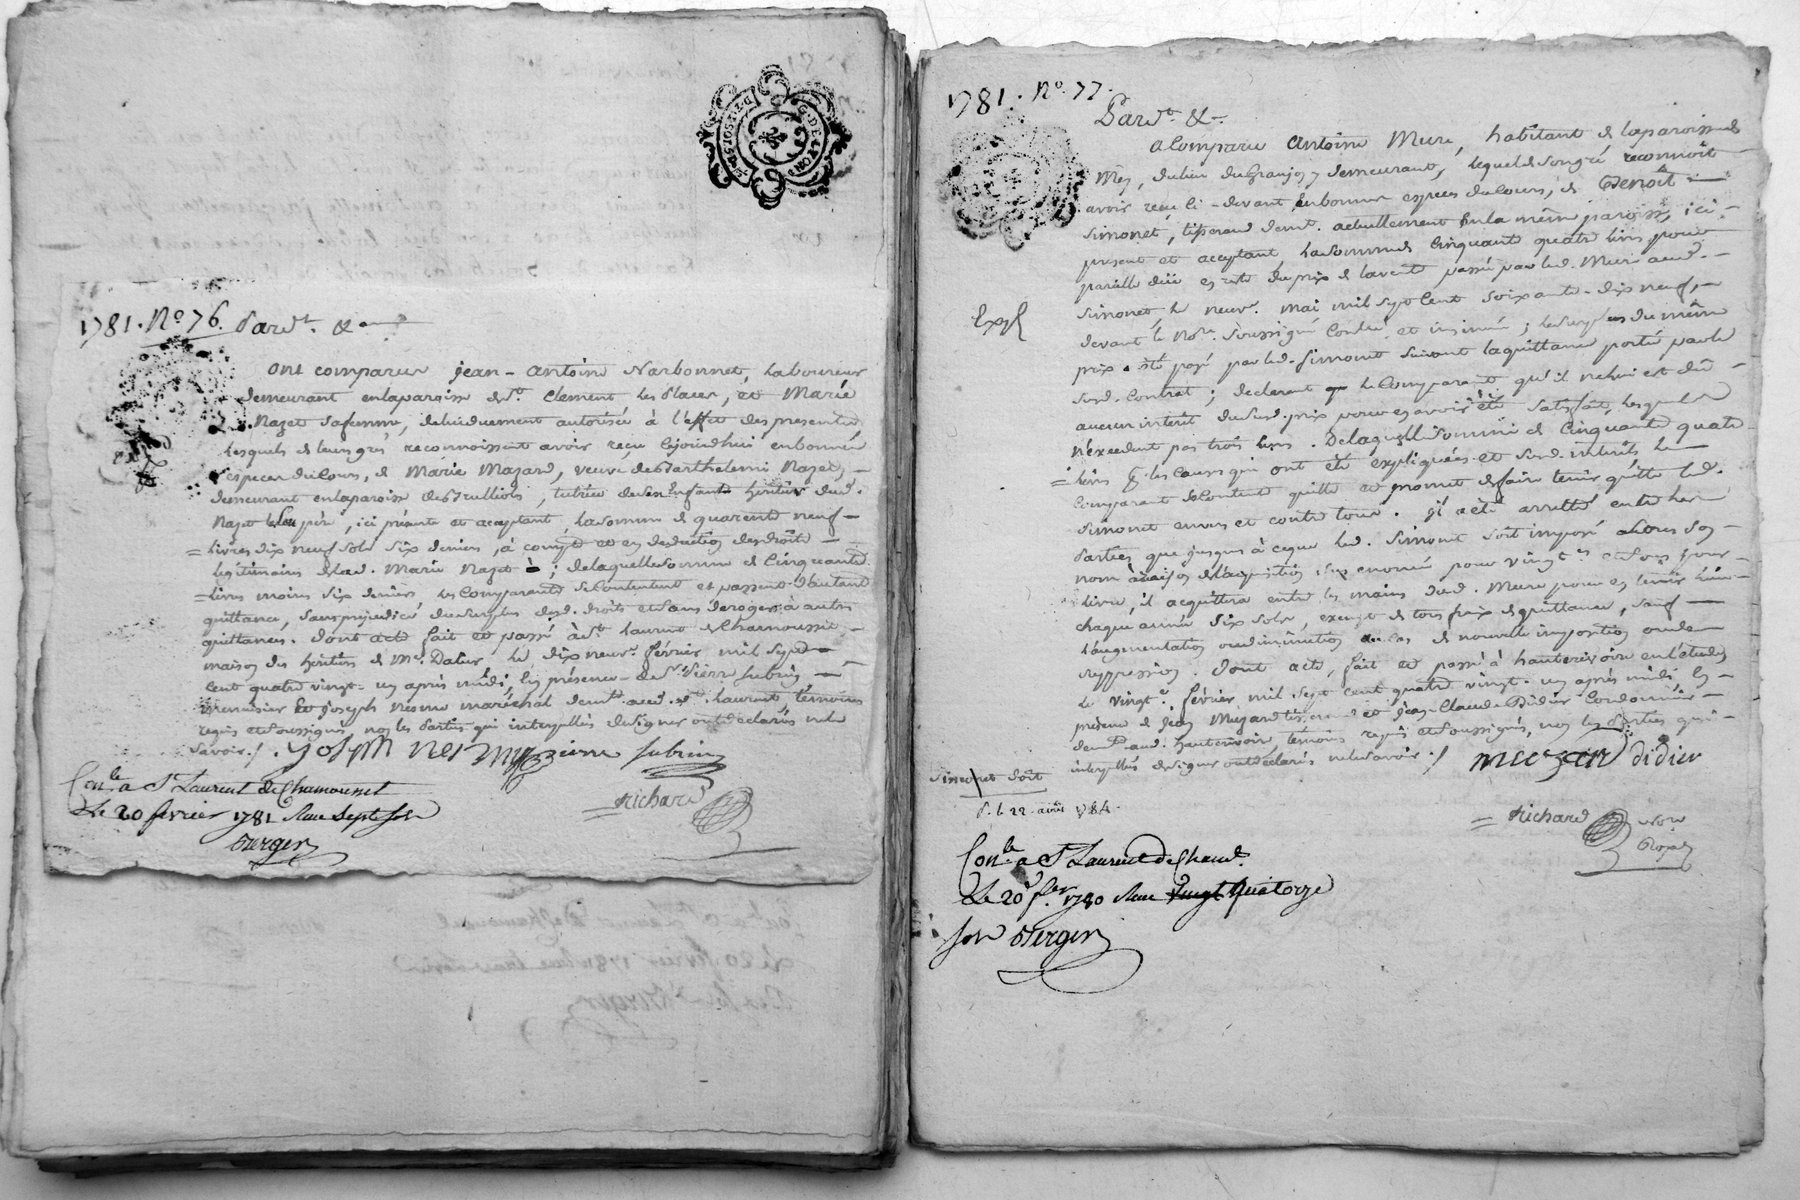 1781. No. 76. Pardt. &a
Ont comparus Jean-Antoine Narbonnet, laboureur
demeurant en la paroisse de St. Clement les Places, et Marie
Nazet sa femme, de lui duement autorisée à l'effet des presentes
Lesquels de leurs grés reconnoissent avoir reçu cejourd'hui en bonnes
especes du Cours, de Marie Mazard, veuve de Barthelemi Nazet,
demeurant en la paroisse des Brulliols, tutrice de ses Enfants heritiers dud.
Nazet leur père, ici présente et acceptant, la somme de quarente neuf
livres dix neuf sols six deniers, à compte et en deduction des droits
légitimaires de lad. Marie Nazet; de laquelle somme de Cinquante
livres moins six deniers les Comparants se Contentent et passent d'autant
quittance, sans prejudice du surplus desd. droits et sans deroger à autres
quittances. Dont acte fait et passé à St. Laurent de Chamousset
maison des heritiers de Me. Dalier, le dix neuve. février mil sept
Cent quatre vingt-un après midi, En présence de Sr. Pierre Subrin
menuisier Et Joseph Nesme maréchal demt. aud. St. Laurent, témoins
requis et soussignés, non les Parties qui interpellées de signer ont déclarés ne le
savoir./. Joseph nesme pierre subrin
Richard
Conlé a St Laurent de Chamousset
Le 20 fevrier 1781 Reçu sept sols
Berger
1781. No. 77.
Pardt. &a
a Comparu Antoine Mure, habitant de la paroisse de
Méy, du lieu du Granjon y demeurant, lequel de son gré reconnoît
avoir reçu Ci-devant en bonnes especes du Cours, de Benoît
Simonet, tisserand demt. actuellement En la même paroisse, ici
present et acceptant, la somme de Cinquante quatre livres pour
pareille düe en reste du prix de la vente passée par led. Mure aud.
Simonet, le neuve. mai mil sept Cent soixante-dix neuf,
devant le Nore. Soussigné Contrôlé et insinué; le surplus du même
Expé
prix a été payé par led. Simonet suivant la quittance portée par le
susd. Contrat; declarant le Comparant qu'il ne lui est dû
aucun interêt du susd. prix pour en avoir été satisfait, lesquels
n'excedent pas trois livres. De laquelle somme de Cinquante quatre
livres p. les Causes qui ont été expliquées et susd. interêts le
Comparant se Contente quitte et promet de faire tenir quitte led.
Simonet envers et contre tous. Il a été arretté entre les
Parties que jusques à ce que led. Simonet soit imposé au rôle en son
nom à raison de l'acquisition sus enoncée pour vingts. et sous pour
livre, il acquittera entre les mains dud. Mure pour en tenir lieu
chaque année six sols, exempt de tous frais de quittance, sauf
l'augmentation ou diminution au Cas de nouvelle imposition ou de
suppression. Dont acte, fait et passé à hauterivoire en l'étude
le vingte. février mil sept cent quatre vingt-un après midi En
présence de Jean Muzard tisserand et Jean-Claude Didier Cordonnier
demts. aud. hauterivoire, temoins requis et soussignés, non les Parties qui
interpellées de signer ont déclarés ne le savoir./. didier
Simonet doit
P. le 22. août 1784.
Richard
Nore
Royal
Conlé a St Laurent de Cham.
Le 20 fer. 1780 Reçu vingt quatorze
sols Berger